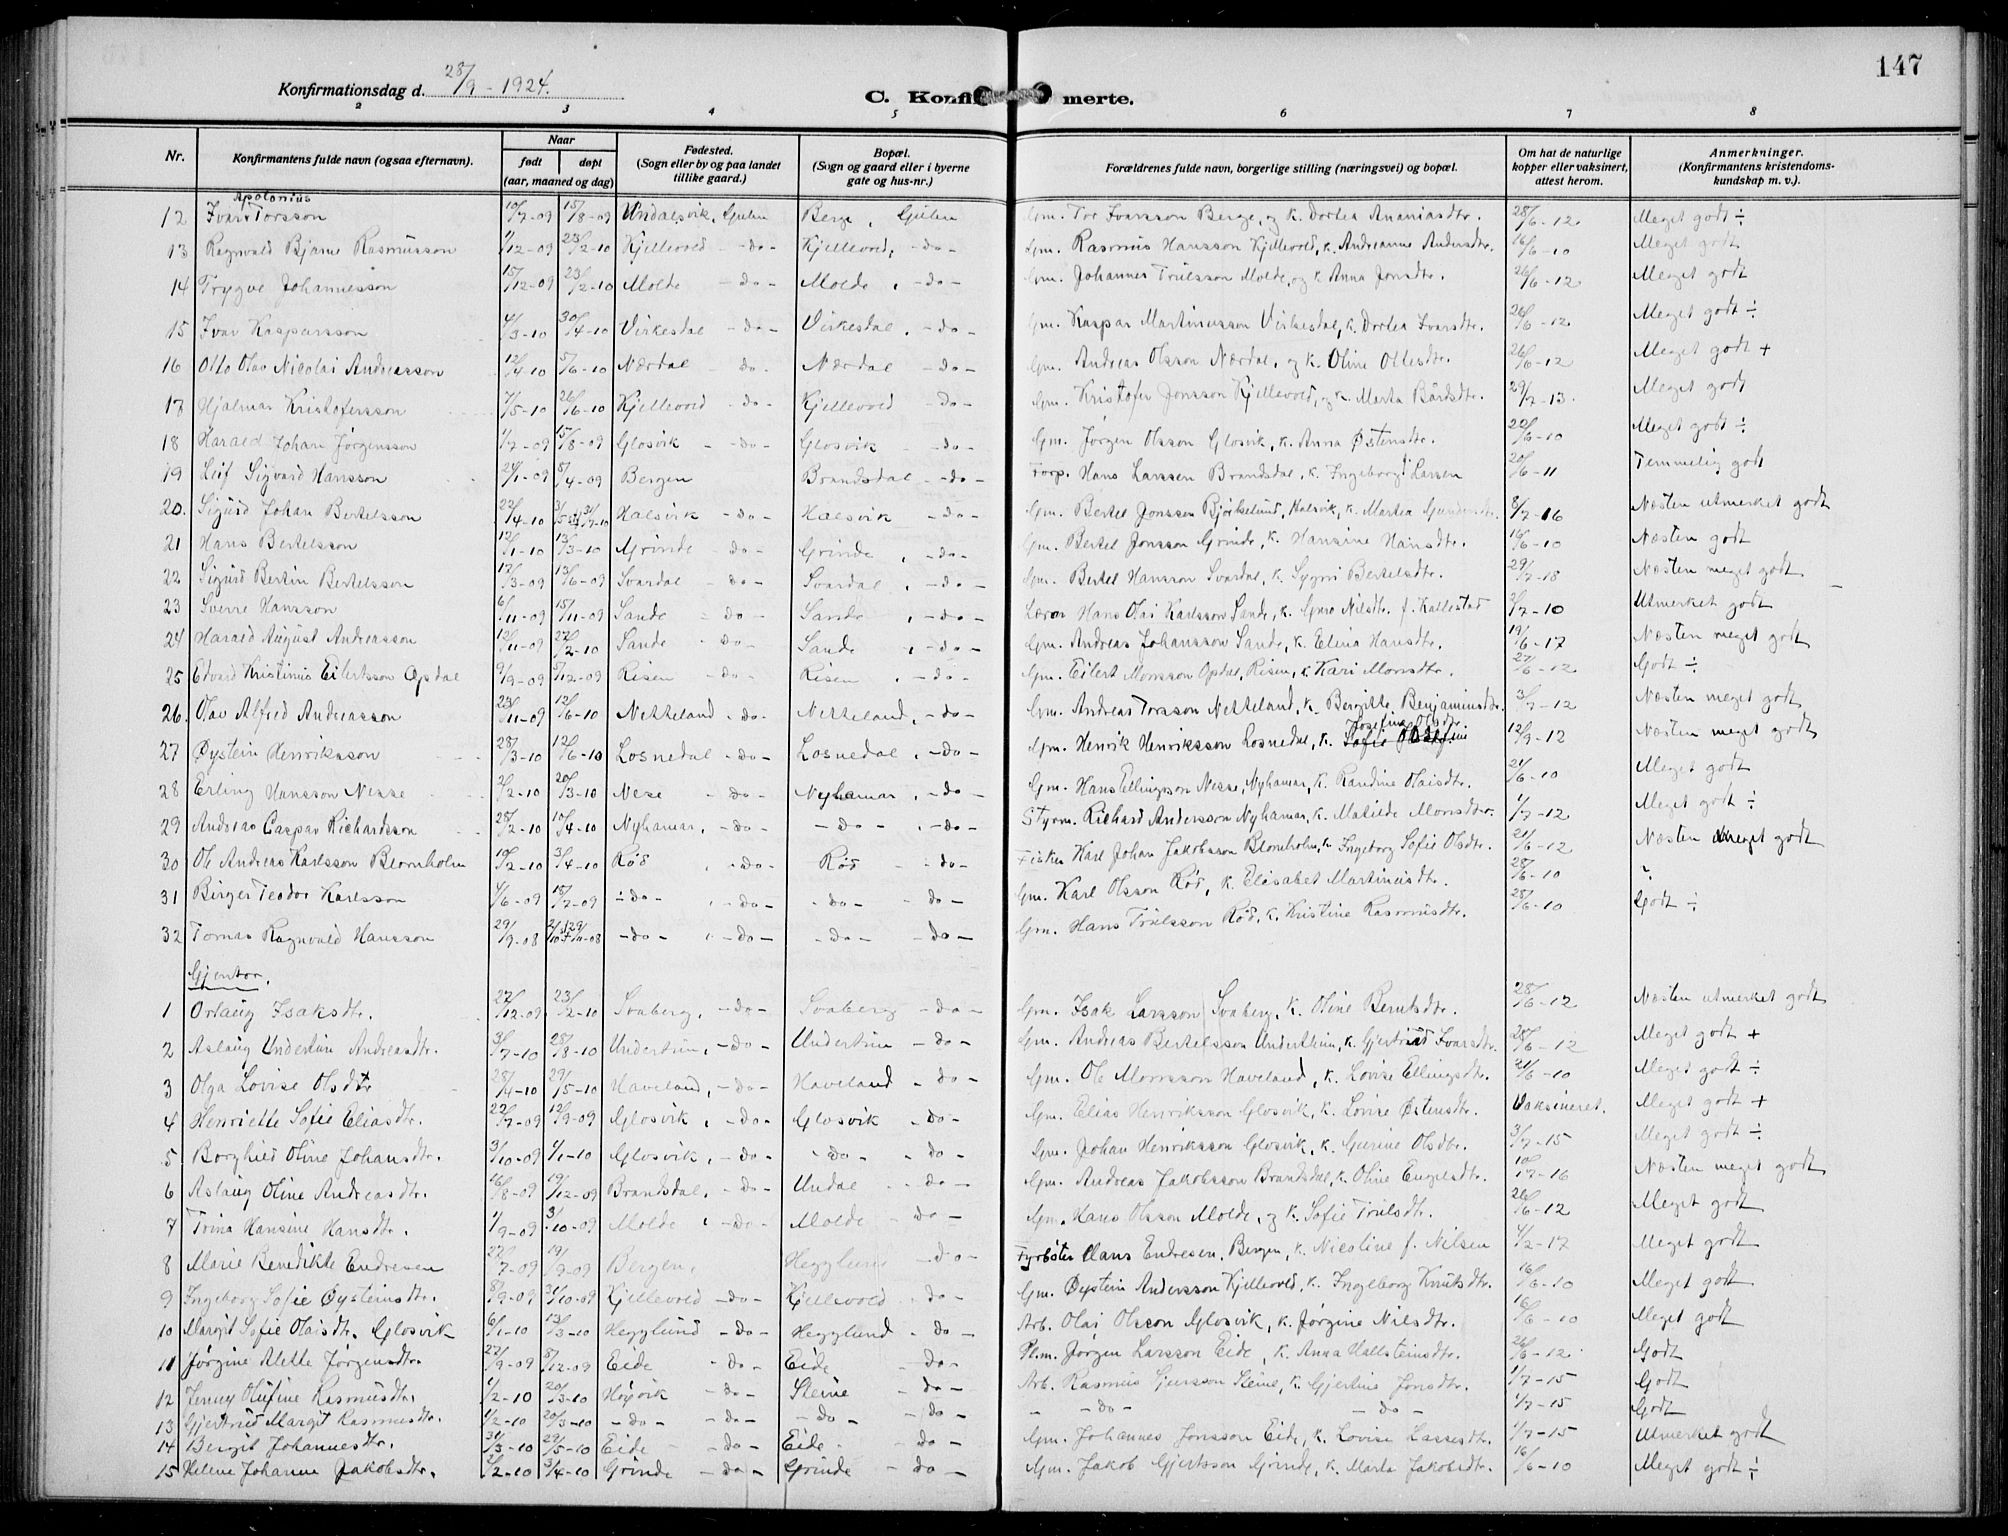 147
Konfirmationsdag d. 28/9 - 1924.
C. Konfirmerte.
2 3 4 5 6 7 8
Nr. Konfirmantens fulde navn (ogsaa efternavn). Naar født døpt (aar, maaned og dag) Fødested. (Sogn eller by og paa landet tillike gaard.) Bopæl. (Sogn og gaard eller i byerne gate og hus-nr.) Forældrenes fulde navn, borgerlige stilling (næringsvei) og bopæl. Om hat de naturlige kopper eller vaksinert, attest herom. Anmerkninger. (Konfirmantens kristendomskundskap m. v.).
Apolonius
12 Ivar Torsson 10/7-09 15/8-09 Undalsvik, Gulen Berge, Gulen Gm. Tor Ivarsson Berge, og k. Dortea Ananiasdtr. 28/6-12 Meget godt ÷
13 Ragnvald Bjarne Rasmusson 1/12-09 23/2-10 Kjellevold - do - Kjellevold, - do - Gm. Rasmus Hansson Kjellevold, k. Andreanne Andersdtr. 16/6-10 Meget godt
14 Trygve Johannesson 15/12-09 23/2-10 Molde - do - Molde, - do - Gm. Johannes Trulsson Molde, og k. Anna Jonsdtr. 26/6-12 Meget godt
15 Ivar Kasparsson 4/3-10 30/4-10 Virkesdal - do - Virkesdal, - do - Gm. Kaspar Martinusson Virkesdal, k. Dortea Ivarsdtr. 26/6-12 Meget godt ÷
16 Otto Olav Nicolai Andreasson 12/4-10 5/6-10 Nærdal - do - Nærdal - do - Gm. Andreas Olsson Nærdal, og k. Oline Ottesdtr. 26/6-12 Meget godt +
17 Hjalmar Kristofersson 7/5-10 26/6-10 Kjellevold - do - Kjellevold - do - Gm. Kristofer Jonsson Kjellevold, og k. Marta Bårdsdtr. 29/7-13. Meget godt
18 Harald Johan Jørgensson 1/7-09 15/8-09 Glosvik - do - Glosvik - do - Gm. Jørgen Olsson Glosvik, k. Anna Østensdtr. 20/6-10 Meget godt ÷
19 Leif Sigvard Hansson 24/1-09 5/4-09 Bergen Brandsdal - do - Torp. Hans Larssen Brandsdal, k. Ingeborg Larsen 20/6-11 Temmelig godt
20. Sigurd Johan Bertelsson 22/4-10 Halsvik - do - Halsvik - do - Gm. Bertel Jonssen Bjørkelund, Halsvik, k. Martea 8/7-16 Næsten utmerket godt
21 Hans Bertelsson 12/1-10 13/3-10 Grinde - do - Grinde, - do - Gm. Bertel Jonsson Grinde, k. Hansine Hansdtr. 16/6-10 Næsten godt
22 Sigurd Bertin Bertelsson 17/3-09 13/6-09 Svardal - do - Svardal, - do - Gm. Bertel Hansson Svardal, k. Sygni Bertelsdtr. 29/7-18 Næsten meget godt
23 Sverre Hansson 6/11-09 15/11-09 Sande - do - Sande, - do - Lærer Hans Olai Karlsson Sande, k. Guro Nilsdtr. f. Kallestad 2/7-10 Utmerket godt
24 Harald August Andreasson 12/11-09 27/2-10 Sande - do - Sande, - do - Gm. Andreas Johansson Sande, k. Elina Hansdtr. 19/6-17 Næsten meget godt
25 Edvard Kristinius Eilertsson Opsdal 9/9-09 5/12-09 Risen - do - Risen, - do - Gm. Eilert Monsson Opdal, Risen, k. Kari Monsdtr. 27/6-12 Godt ÷
26. Olav Alfred Andreasson 23/11-09 12/6-10 Netteland - do - Netteland, - do - Gm. Andreas Torsson Netteland, k. Bergitte Benjaminsdtr. 3/7-12 Næsten meget godt
27 Øystein Henriksson 28/3-10 12/6-10 Losnedal - do - Losnedal, - do - Gm. Henrik Henriksson Losnedal, k. Josefine Olsdtr. 12/9-12 Næsten meget godt
28 Erling Hansson Nesse 2/2-10 20/3-10 Nese - do - Nyhamar, - do - Gm. Hans Ellingsson Nesse, Nyhamar, k. Randine Olaisdtr. 21/6-10 Meget godt
29 Andreas Caspar Richardsson 28/2-10 10/4-10 Nyhamar, - do - - do - , - do - Styrm. Richard Andersson Nyhamar, k. Matilde Monsdtr. 1/7-12 Meget godt ÷
30 Ole Andreas Karlsson Blomholm 10/2-10 3/4-10 Röd , - do - Röd - do - Fisker Karl Johan Jakobsson Blomholm, k. Ingeborg Sofie Olsdtr. 21/6-12 Næsten meget godt
31 Birger Teodor Karlsson 4/6-09 18/7-09 - do - , - do - - do - - do - Gm. Karl Olsson Röd, k. Elisabet Martinusdtr. 28/6-10 "
32 Tomas Ragnvald Hansson 29/9-08 - do - , - do - - do - - do - Gm. Hans Trulsson Röd, k. Kristine Rasmusdtr. 28/6-10 Godt ÷
Gjentor.
1 Orlaug Isaksdtr. 27/12-09 23/2-10 Svaberg, - do - Svaberg - do - Gm. Isak Larsson Svaberg, k. Oline Berntsdtr. 28/6-12 Næsten utmerket godt
2 Aslaug Undertun Andreasdtr. 3/7-10 28/8-10 Undertun, - do - Undertun - do - Gm. Andreas Bertelsson Undertun, k. Gjertrud Ivarsdtr. 28/6-12 Meget godt +
3 Olga Lovise Olsdtr 28/4-10 29/5-10 Haveland, - do - Haveland - do - Gm. Ole Monsson Haveland, k. Lovise Ellingsdtr. 21/6-10 Meget godt ÷
4 Henriette Sofie Eliasdtr. 22/7-09 12/9-09 Glosvik, - do - Glosvik - do - Gm. Elias Henriksson Glosvik, k. Lovise Østensdtr. Vaksineret. Meget godt +
5 Borghild Oline Johansdtr. 3/10-09 1/1-10 Glosvik, - do - - do - - do - Gm. Johan Henriksson Glosvik, k. Gurine Olsdtr. 3/7-15 Meget godt ÷
6 Aslaug Oline Andreasdtr. 16/8-09 19/12-09 Brandsdal, - do - Undal - do - Gm. Andreas Jakobsson Brandsdal, k. Oline Engelsdtr. 10/7-16 Næsten meget godt
7 Trina Hansine Hansdtr. 1/9-09 3/10-09 Molde , - do - Molde - do - Gm. Hans Olsson Molde, og k. Sofie Trulsdtr. 26/6-12 Meget godt
8 Marie Benedikte Endresen 22/7-09 19/9-09 Bergen, Hegglund - do - Fyrböter Hans Endresen, Bergen, k. Nicoline f. Nilsen 4/2-17 Meget godt
9 Ingeborg Sofie Øysteinsdtr. 8/9-09 31/10-09 Kjellevold - do - Kjellevold - do - Gm. Øystein Andersson Kjellevold, k. Ingeborg Knutsdtr. 16/6-10 Meget godt
10 Margit Sofie Olaisdtr. Glosvik 6/1-10 13/3-10 Hegglund - do - Hegglund - do - Arb. Olai Olsson Glosvik, k. Jørgine Nilsdtr. 16/6-10 Meget godt
11 Jørgine Alette Jørgensdtr. 22/9-09 5/12-09 Eide - do - Eide - do - Plm. Jørgen Larsson Eide, k. Anna Hallsteinsdtr. 26/6-12 Godt
12 Jenny Olufine Rasmusdtr. 1/2-10 20/3-10 Höyvik - do - Steine - do - Arb. Rasmus Gjersson Steine, k. Gjertine Jonsdtr. 1/7-15 Godt
13 Gjertrud Margit Rasmusdtr. 1/2-10 20/3-10 - do - - do - - do - - do - - - do - - do - 1/7-15 Godt
14 Bergit Johannesdtr. 31/3-10 29/5-10 Eide - do - Eide - do - Gm. Johannes Jonsson Eide, k. Lovise Lassesdtr. 1/7-15 Utmerket godt
15 Helene Johanne Jakobsdtr. 2/2-10 3/4-10 Grinde - do - Grinde - do - Gm. Jakob Gjertsson Grinde, k. Marta Jakobsdtr. 16/6-10 Meget godt ÷